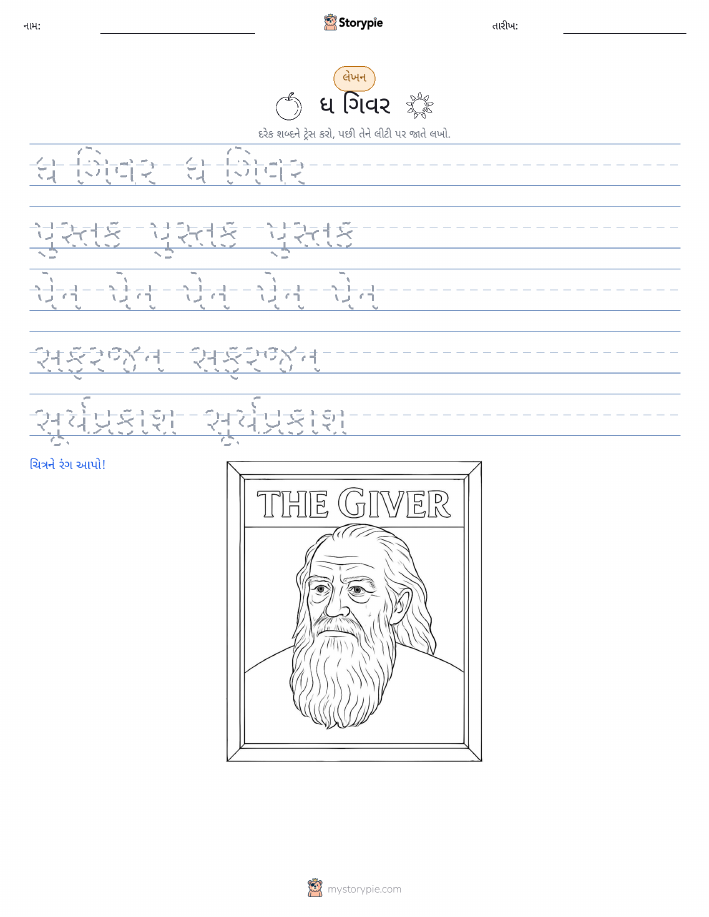 નામ: Storypie તારીખ:
લેખન
ધ ગિવર
દરેક શબ્દને ટ્રેસ કરો, પછી તેને લીટી પર જાતે લખો.
ધ ગિવર ધ ગિવર
પુસ્તક પુસ્તક પુસ્તક
પેન પેન પેન પેન પેન
સફરજન સફરજન
સૂર્યપ્રકાશ સૂર્યપ્રકાશ
ચિત્રને રંગ આપો!
THE GIVER
mystorypie.com